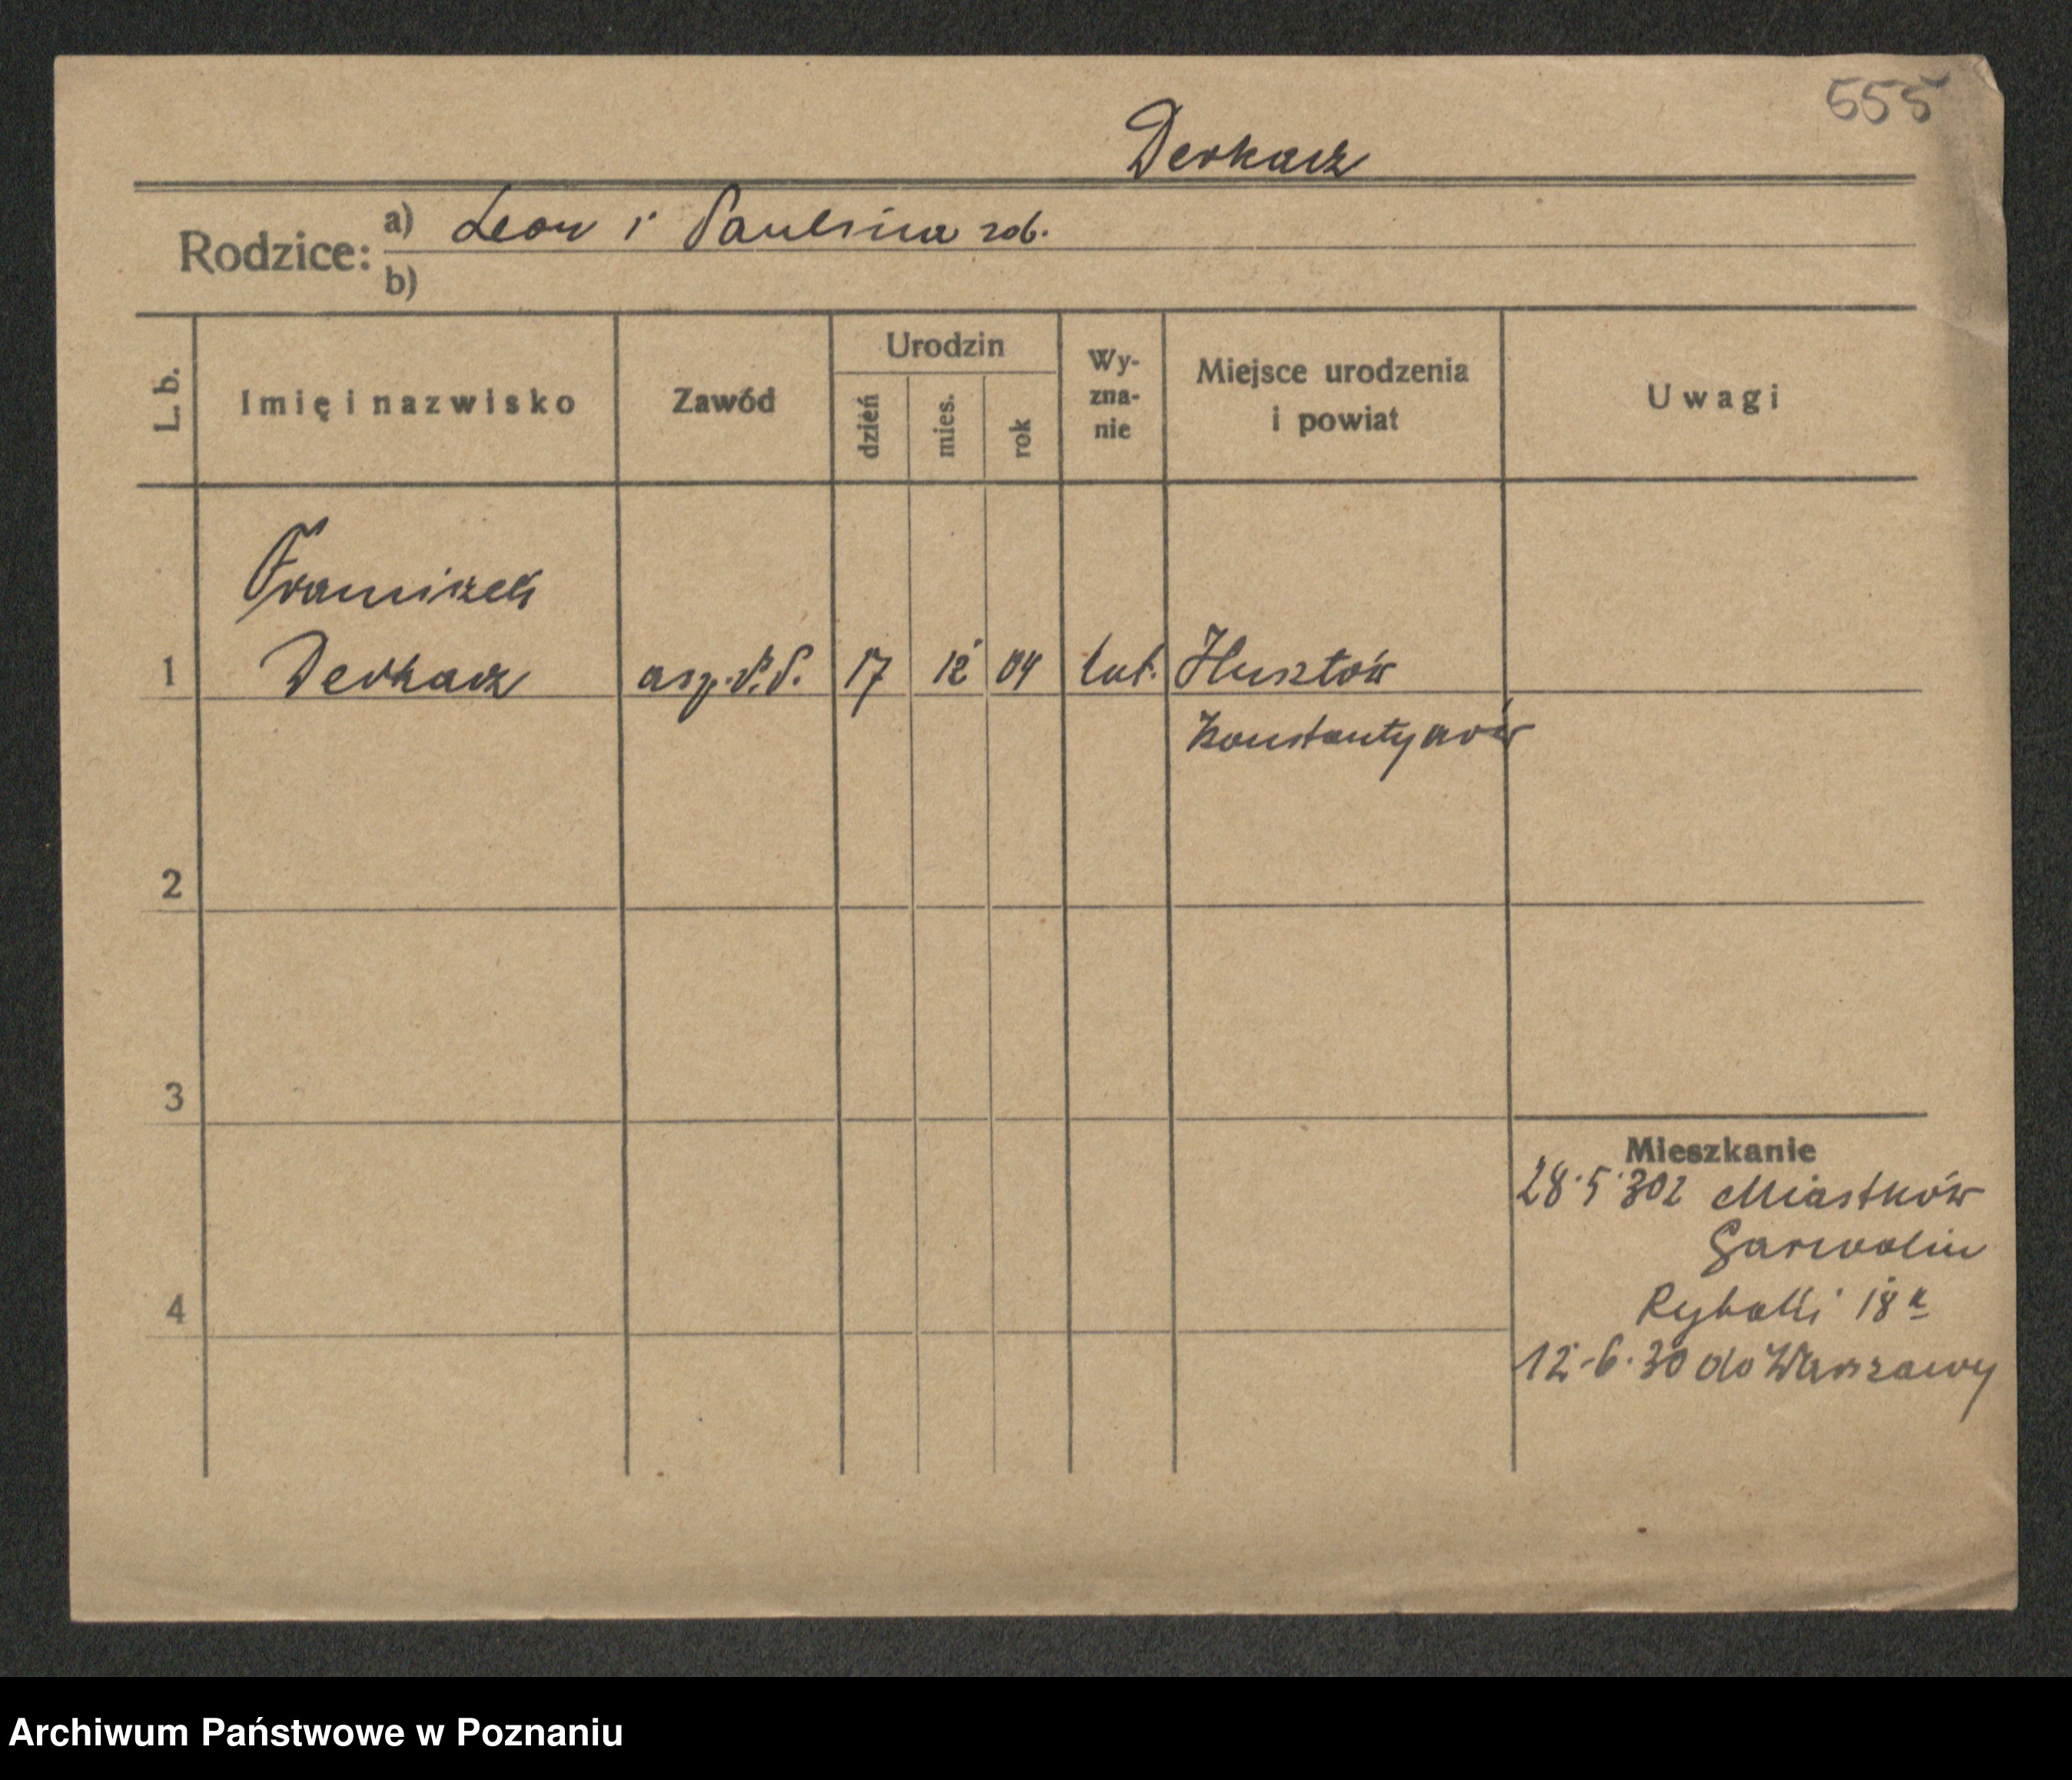 555
Derkacz
Rodzice: a) Leon i Paulina rob.
b)
L. b.
Imię i nazwisko
Zawód
Urodzin
dzień
mies.
rok
Wy-
zna-
nie
Miejsce urodzenia
i powiat
Uwagi
Franciszek
1 Derkacz asp. P.P. 17 12 04 kat.
Konstantynów
2
3
4
Mieszkanie
28.5.30 z Miastków
Garwolin
Rybaki 18a
12.6.30 do Warszawy
Archiwum Państwowe w Poznaniu